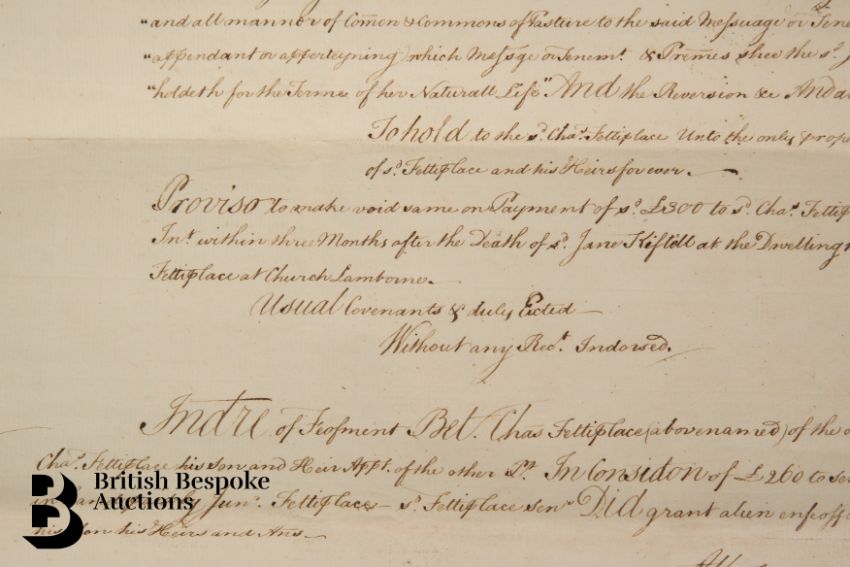 "and all manner of Com̃on & Commons of Pasture to the said Messuage or Tene
"appendant or apperteyning) which Messge or Tenemt. & Prem̃es shee the sd. J
"holdeth for the Terme of her Naturall Life" And the Reversion &c And a
To hold to the sd. Chas. Fettiplace Unto the only & prop
of sd. Fettiplace and his Heirs for ever.
Proviso to make void same on Payment of sd. £300 to sd. Chas. Fettip
Int. within three Months after the Death of sd. Jane at the Dwelling
Fettiplace at Church Lamborne.
Usual Covenants & duly Exted
Without any Rect. Indorsed.
Indre of Feofment Bet. Chas Fettiplace (above named) of the o
Chas. Fettiplace his Son and Heir Appt. of the other Pt. In Considon of £260 to sd
by Junr. Fettiplace sd. Fettiplace senr. Did grant alien enfeoff
his Son his Heirs and Ass.
British Bespoke
Auctions